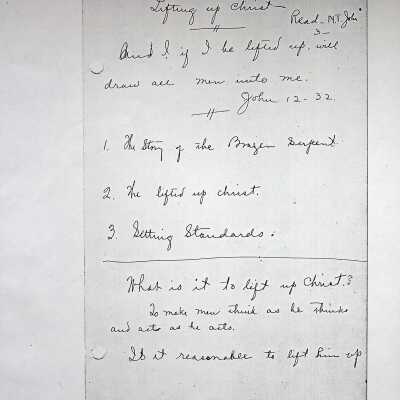 Lifting up Christ
Read - N.T. John
3 -
And I, if I be lifted up, will
draw all men unto me.
John 12-32.
1. The Story of the Brazen Serpent
2. The lifted up christ.
3. Setting Standards.
What is it to lift up Christ?
To make men think as he thinks
and acts as he acts.
Is it reasonable to lift him up